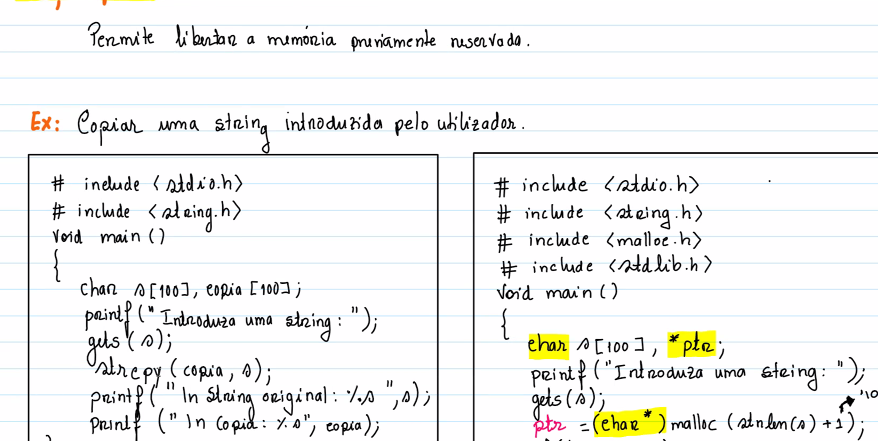 Permite libertar a memória previamente reservada.
Ex: Copiar uma string introduzida pelo utilizador.
# include <stdio.h>
# include <string.h>
void main ()
{
char s[100], copia [100];
printf (" Introduza uma string : ");
gets (s);
strcpy ( copia, s);
printf (" \n String original : %s ", s);
printf (" \n Copia : %s", copia);
# include <stdio.h>
# include <string.h>
# include <malloc.h>
# include <stdlib.h>
void main ()
{
char s[100], *ptr;
printf ("Introduza uma string : ");
gets (s);
ptr = (char*) malloc (strlen(s) + 1);